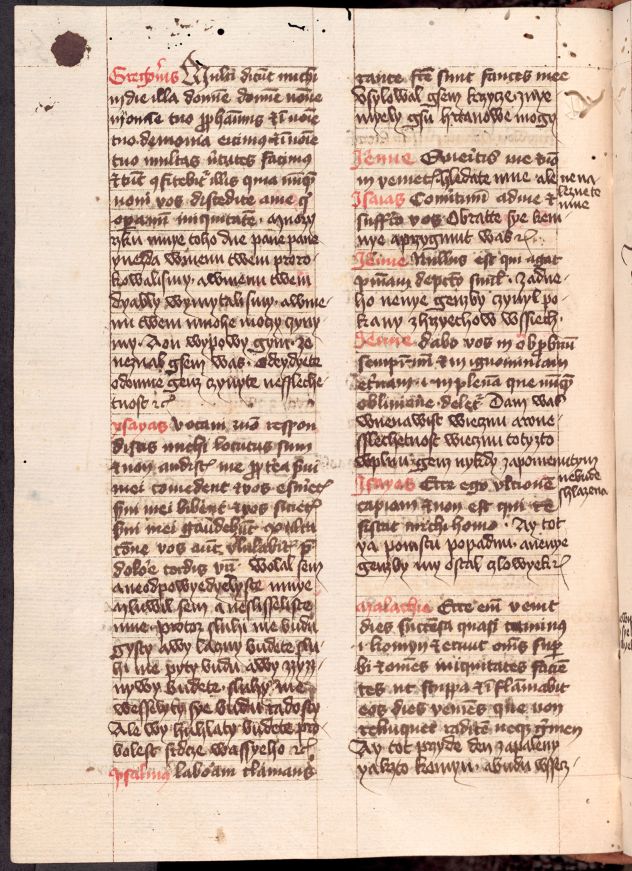 Gregorius Multi dicent michi
in die illa domine domine nonne
in nomine tuo prophauimus et in noie
tuo demonia eicimus et in noie
tuo multas virtutes facimus
et tunc confitebor illis quia nunquam
noui vos discedite a me qui
operamini iniquitatem. Mnozy
rzku mnye toho dne pane pane
ynelda wmenu twem proro-
kowali smy. a wmenu twem
dyably wymytali smy. a wme-
nu twem mnohe moczy czyny
my. A on wypowy gym. Ze
neznal gsem was. Odeydyete
odemne genz czynyte nessleche-
tnost etc
ysayas Vocaui et non respon
distis michi locutus sum
et non audistis me propterea serui
mei comedent et vos esurietis
serui mei bibent et vos sicietis
serui mei gaudebunt
vos autem vlulabitis pre
dolore cordis vestri Wolal sem
a neodpowyedyelyste mnye
mluwil sem a neslisseliste
mne. protoz sluhi me budu
gysty a wy laczny budete slu-
hi me pyty budu a wy zyz-
nywy budete. sluhy me
wesselyty sye budu radosty
Ale wy huhlaty budete pro
bolest srdcze wasseho etc
psalmus laboraui clamans
rauce facte sunt fauces mee
Vsylowal gsem krzycze zmye
nyely gsu hrtanowe mogy
Jeremie Queritis me et non
inuenietis hledate mne ale ne na
leznete
mne
Isaias Conuertimini ad me et
suffero vos Obratte sye kem
nye a przygmut was etc
Jeremie Nullus est qui agat
penitenciam de peccatis simul. zadne-
ho nenye genzby czynyl po-
kany z hrzyechow wssiech.
Jeremie dabo vos in obprobrium
sempiternum et in ignominiam
eternam que nunquam
obliuione deletur Dam was
wnenawist wiecznu a wne-
sslechetnost wiecznu totyzto
genz nykdy zapomenutym
nebude
shlazena
Isayas Ecce ego vlcionem
capiam et non est qui re
sistat michi homo. Ay tot
ya pomstu popadnu. a nenye
genzby my ostal zlowyek etc
Malachie Ecce enim venit
dies succensa quasi caminus
et erunt omnes super
bi et omnes iniquitates facien
tes ut stippa et inflamabit
eos dies veniens que non
relinquet radicem neque germen
Ay tot przyde den zapaleny
yakzto komyn. a budu wssicz-